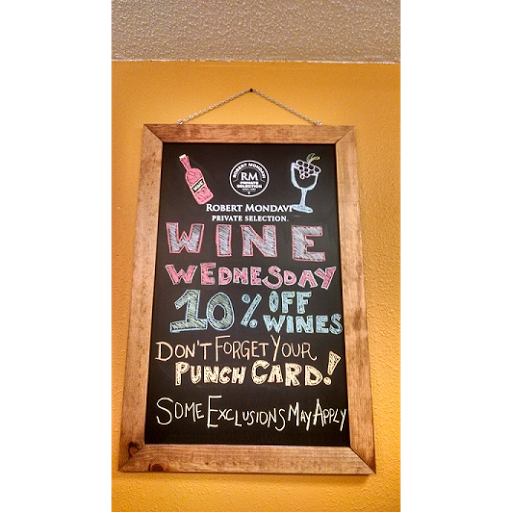 ROBERT MONDAVI
RM
PRIVATE
SELECTION
ROBERT MONDAVI
PRIVATE SELECTION.
WINE
WEDNESDAY
10% OFF
WINES
DON'T FORGET YOUR
PUNCH CARD!
SOME EXCLUSIONS MAY APPLY